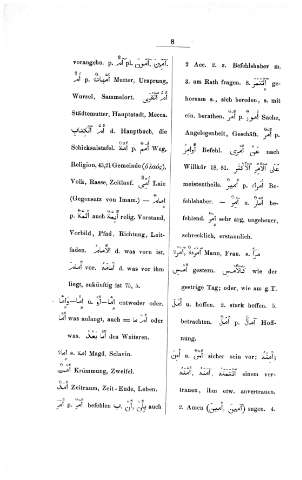 8
vorangehn. p. آمّ pl. آمّون, آمّين.
أُمّ p. أُمَّهَات Mutter, Ursprung,
Wurzel, Sammelort. أُمّ القُرَى
Städtemutter, Hauptstadt, Mecca.
أُمّ الكِتَاب d. Hauptbuch, die
Schicksalstafel. أُمَّة p. أُمَم Weg,
Religion, 43,21 Gemeinde
Volk, Rasse, Zeitlauf. أُمِّيّ Laie
(Gegensatz von Imam). — إِمَام
p. أَئِمَّة auch relig. Vorstand,
Vorbild, Pfad, Richtung, Leit-
faden. d. was vorn ist,
أَمَامَ vor. d. was vor ihm
liegt, zukünftig ist 75, 5.
إِمَّا — أَو u. إِمَّا — وَإِمَّا entweder oder.
أَمَّا was anlangt, auch — oder أَمَّا
was. أَمَّا بَعْدُ des Weiteren.
أَمَة Magd, Sclavin.
أَمْت Krümmung, Zweifel.
أَمَد Zeitraum, Zeit-Ende, Leben.
أَمَرَ p. befehlen auch
2 Acc. 2. s. Befehlshaber m.
3. um Rath fragen. 8. ge-
horsam s., sich bereden, s. mit
ein. berathen. أَمْر p. أُمُور Sache,
Angelegenheit, Geschäft. أَمْر p.
أَوَامِر Befehl. عَنْ أَمْرِي nach
Willkür 18, 81.
meistentheils. أَمِير p. أُمَرَاء Be-
fehlshaber. — be-
fehlend. إِمْر sehr arg, ungeheuer,
schrecklich, erstaunlich.
Mann, Frau.
أَمْسِ gestern. كَالأَمْسِ wie der
gestrige Tag; oder, wie am g. T.
أَمَلَ u. hoffen. 2. stark hoffen. 5.
betrachten. أَمَل p. آمَال Hoff-
nung.
أَمِنَ u. أَمَنَ sicher sein vor;
einem ver-
trauen, ihm etw. anvertrauen.
2. Amen (آمِين, أَمِين) sagen. 4.